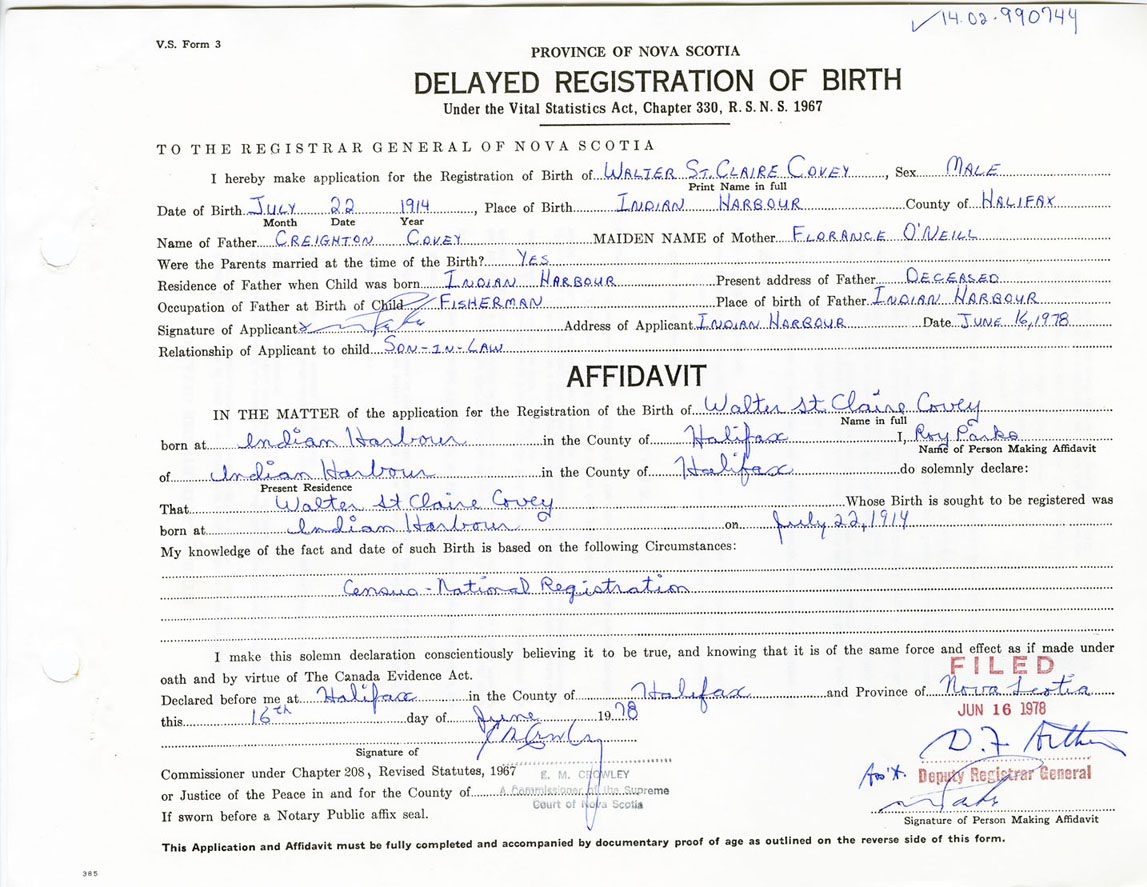 14.02-990744
V.S. Form 3
PROVINCE OF NOVA SCOTIA
DELAYED REGISTRATION OF BIRTH
Under the Vital Statistics Act, Chapter 330, R. S. N. S. 1967
TO THE REGISTRAR GENERAL OF NOVA SCOTIA
I hereby make application for the Registration of Birth of WALTER ST. CLAIRE COVEY, Sex MALE
Print Name in full
Date of Birth JULY 22 1914, Place of Birth INDIAN HARBOUR County of HALIFAX
Month Date Year
Name of Father CREIGHTON COVEY MAIDEN NAME of Mother FLORANCE O'NEILL
Were the Parents married at the time of the Birth? YES
Residence of Father when Child was born INDIAN HARBOUR Present address of Father DECEASED
Occupation of Father at Birth of Child FISHERMAN Place of birth of Father INDIAN HARBOUR
Signature of Applicant Address of Applicant INDIAN HARBOUR Date JUNE 16, 1978
Relationship of Applicant to child SON-IN-LAW
AFFIDAVIT
IN THE MATTER of the application for the Registration of the Birth of Walter St Claire Covey
Name in full
born at Indian Harbour in the County of Halifax I, Roy Parks
Name of Person Making Affidavit
of Indian Harbour in the County of Halifax do solemnly declare:
Present Residence
That Walter St Claire Covey Whose Birth is sought to be registered was
born at Indian Harbour on July 22, 1914
My knowledge of the fact and date of such Birth is based on the following Circumstances:
Census - National Registration
I make this solemn declaration conscientiously believing it to be true, and knowing that it is of the same force and effect as if made under
oath and by virtue of The Canada Evidence Act.
FILED
Declared before me at Halifax in the County of Halifax and Province of Nova Scotia
this 16th day of June 1978
JUN 16 1978
Signature of
Commissioner under Chapter 208, Revised Statutes, 1967 E. M. CROWLEY
Ass't. Deputy Registrar General
or Justice of the Peace in and for the County of A Commissioner of the Supreme
Court of Nova Scotia
If sworn before a Notary Public affix seal.
Signature of Person Making Affidavit
This Application and Affidavit must be fully completed and accompanied by documentary proof of age as outlined on the reverse side of this form.
385